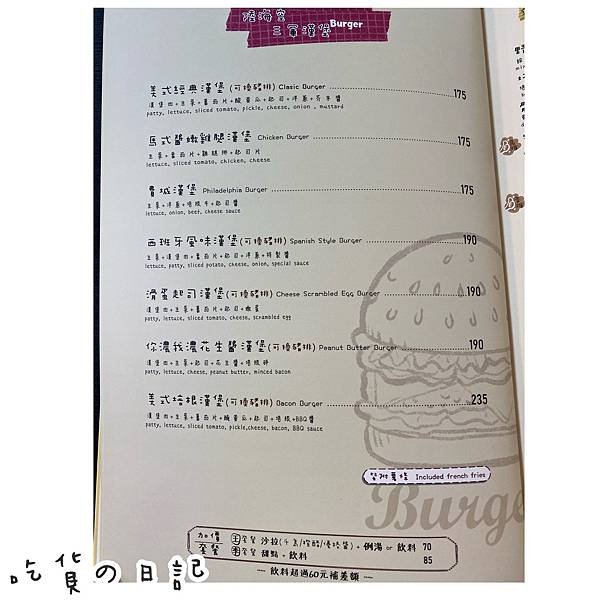 陸海空
三軍漢堡 Burger
美式經典漢堡(可換豬排) Clasic Burger 175
漢堡肉+生菜+蕃茄片+酸黃瓜+起司+洋蔥+芥末醬
patty, lettuce, sliced tomato, pickle, cheese, onion , mustard
馬式醬嫩雞腿漢堡 Chicken Burger 175
生菜+蕃茄片+雞腿排+起司片
lettuce, sliced tomato, chicken, cheese
費城漢堡 Philadelphia Burger 175
生菜+洋蔥+培根牛+起司醬
lettuce, onion, beef, cheese sauce
西班牙風味漢堡(可換豬排) Spanish Style Burger 190
生菜+漢堡肉+蕃茄片+起司+洋蔥+特製醬
lettuce, patty, sliced potato, cheese, onion, special sauce
滑蛋起司漢堡(可換豬排) Cheese Scrambled Egg Burger 190
漢堡肉+生菜+蕃茄片+起司+嫩蛋
patty, lettuce, sliced tomato, cheese, scrambled egg
你濃我濃花生醬漢堡(可換豬排) Peanut Butter Burger 190
漢堡肉+生菜+起司+花生醬+培根碎
patty, lettuce, cheese, peanut butter, minced bacon
美式培根漢堡(可換豬排) Bacon Burger 235
漢堡肉+生菜+蕃茄片+酸黃瓜+起司+培根+BBQ醬
patty, lettuce, sliced tomato, pickle,cheese, bacon, BBQ sauce
皆附薯條 Included french fries
Burge
加價 套餐
主套餐 沙拉(千島/油醋/優格醬) + 例湯 or 飲料 70
套餐 甜點 + 飲料 85
飲料超過60元補差額
吃貨の日記